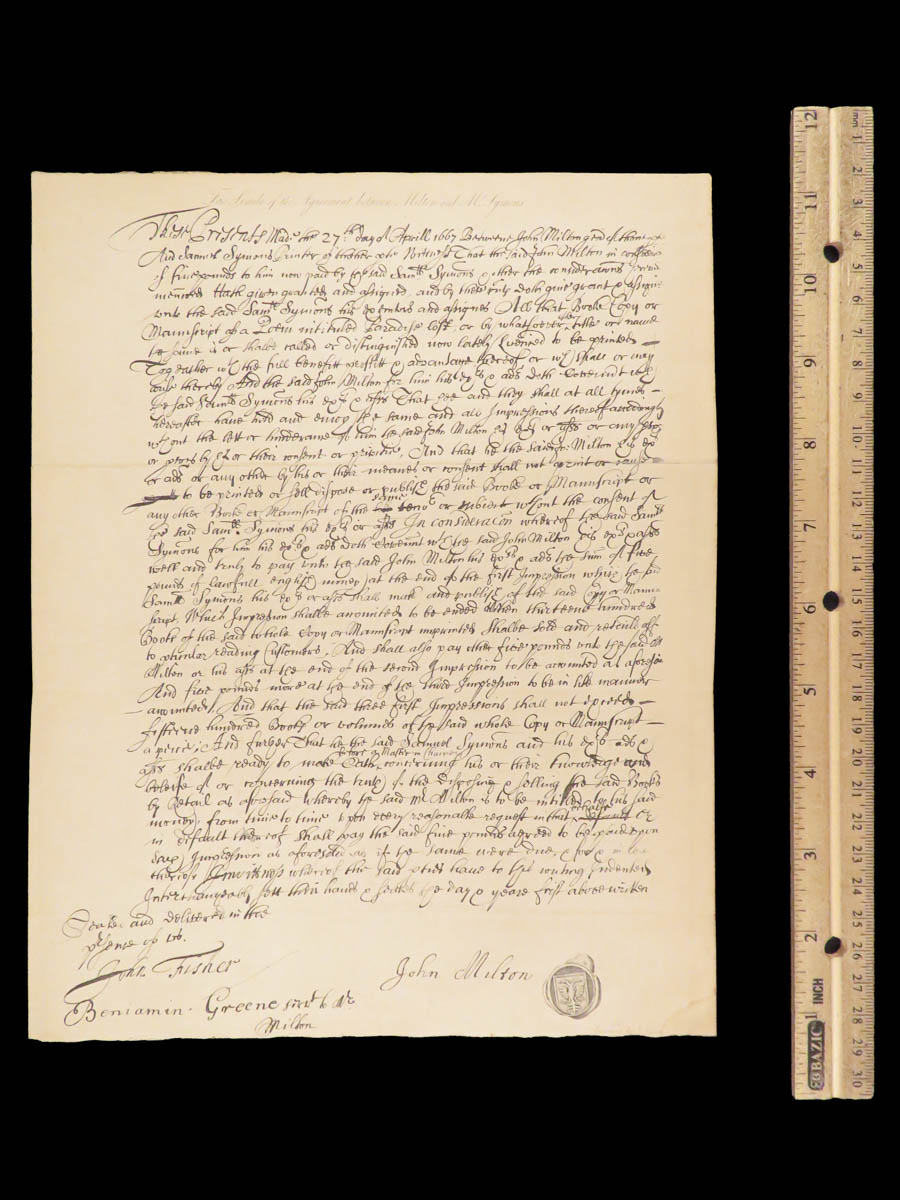 Fac Simile of the Agreement between Milton and Mr Symons
These Presents Made the 27th day of Aprill 1667 Betweene John Milton gent of thone pte
And Samuel Symons Printer of thother pte Wittness That the said John Milton in consideracon
of five pounds to him now paid by the said Samll Symons & other the consideracons herein
menconed Hath given granted and assigned, and by these pnts doth give grant & assigne
unto the said Samll Symons his executors and assignes All that Booke Copy or
Manuscript of a Poem intituled Paradise lost, or by whatsoever other title or name
the same is or shalbe called or distinguished now lately Licenced to be printed
Together wth the full benefitt proffitt & advantage thereof or wch shall or may
arise thereby And the said John Milton for him his exrs & ads doth Covenant wth
the said Samll Symons his exrs & ass That hee and they shall at all tymes
hereafter have hold and enjoy the same and all Impressions thereof accordingly
wthout the lett or hinderance of him the said John Milton his exrs or ass or any pson
or psons by his or their consent or privitie. And that he the said Jo: Milton his ex
or ads or any other by his or their meanes or consent shall not print or cause
to be printed or sell dispose or publish the said Booke or Manuscript or
any other Booke or Manuscript of the same tenor or subject wthout the consent of
the said Samll Symons his exrs or ass In consideracon whereof the said Samll
Symons for him his exrs & ads doth Covenant wth the said John Milton his exrs & ass
well and truly to pay unto the said John Milton his exrs & ads the sum of five
pounds of lawfull english money at the end of the first Impression which the said
Samll Symons his exrs or ass shall make and publish of the said Copy or Manu-
script, Which Impression shalbe accounted to be ended when thirteene hundred
Books of the said whole Copy or Manuscript imprinted shalbe sold and retaild off
to pticular reading Customers. And shall also pay other five pounds unto the said Mr
Milton or his ass at the end of the second Impression to be accounted as aforesaid
And five pounds more at the end of the third Impression to be in like manner
accounted. And that the said three first Impressions shall not exceed
fifteene hundred Books or volumes of the said whole Copy or Manuscript
a peice. And further That he the said Samuel Symons and his exrs ads &
ass shalbe ready to make Oath before a Master in Chancery concerning his or their knowledge and
beleife of or concerning the truth of the disposing & selling the said Books
by Retail as aforesaid whereby the said Mr Milton is to be intitled to his said
money from time to time upon every reasonable request in that behalfe or
in default thereof shall pay the said five pounds agreed to be paid upon
each Impression as aforesaid as if the same were due & for & in lieu
thereof In witness whereof the said pties have to this writing indented
Interchangeably sett their hands & seales the day & yeare first above written
Sealed and delivered in the
psence of us.
John Fisher
John Milton
Beniamin Greene servt to Mr
Milton
12
11
10
9
8
7
6
5
4
3
2
1
INCH
BAZIC
mm
1
2
3
4
5
6
7
8
9
10
11
12
13
14
15
16
17
18
19
20
21
22
23
24
25
26
27
28
29
30